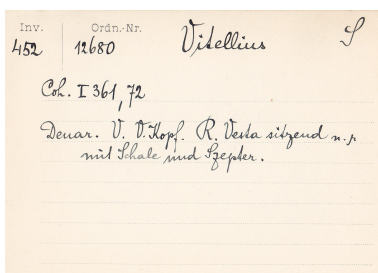 Inv. Ordn.-Nr.
452 12680 Vitellius S
Coh. I 361, 72
Denar. V. V. Kopf. R. Vesta sitzend n. r.
mit Schale und Szepter.